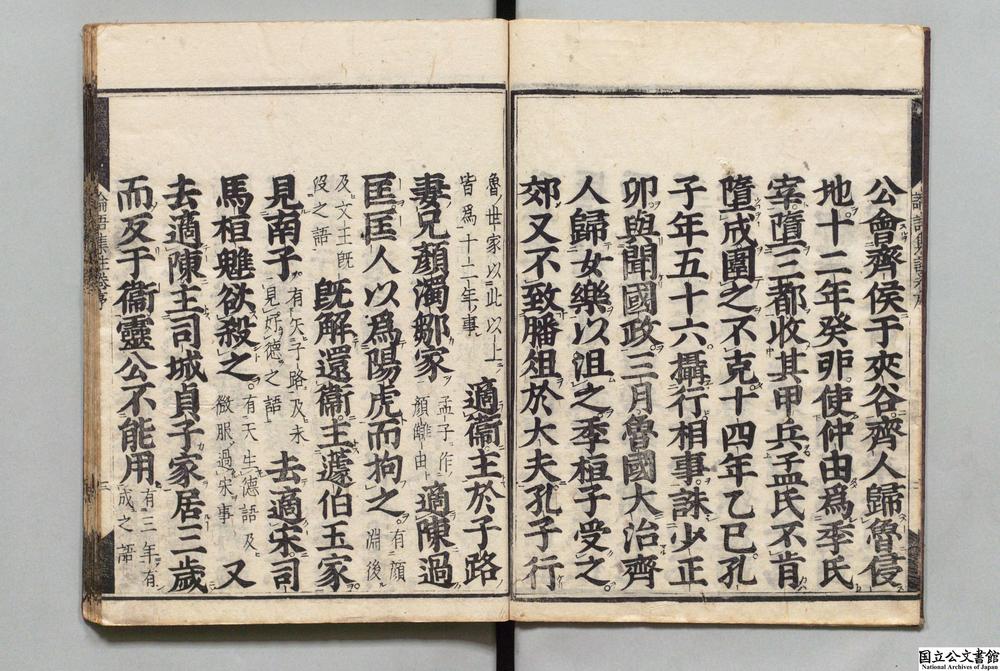 公會齊侯于夾谷齊人歸魯侵
地十二年癸卯使仲由為季氏
宰墮三都收其甲兵孟氏不肯
墮成圍之不克十四年乙巳孔
子年五十六攝行相事誅少正
卯與聞國政三月魯國大治齊
人歸女樂以沮之季桓子受之
郊又不致膰俎於大夫孔子行
魯世家以此以上
皆為十二年事
適衞主於子路
妻兄顏濁鄒家
孟子作
顏讎由
適陳過
匡匡人以為陽虎而拘之
有顏
淵後
及文王既
段之語
既解還衞主蘧伯玉家
見南子
有矢子路及未
見好德之語
去適宋司
馬桓魋欲殺之
有天生德語及
微服過宋事
又
去適陳主司城貞子家居三歲
而反于衞靈公不能用
有三年有
成之語
論語集註卷序
国立公文書館
National Archives of Japan